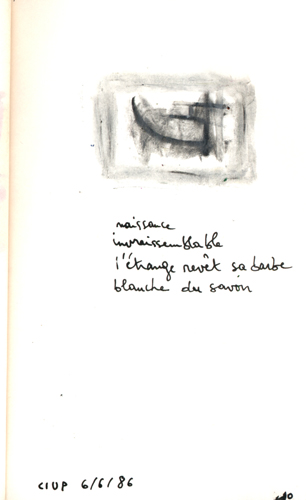 naissance
invraissemblable
l'étrange revêt sa barbe
blanche du savoir
CIUP 6/6/86